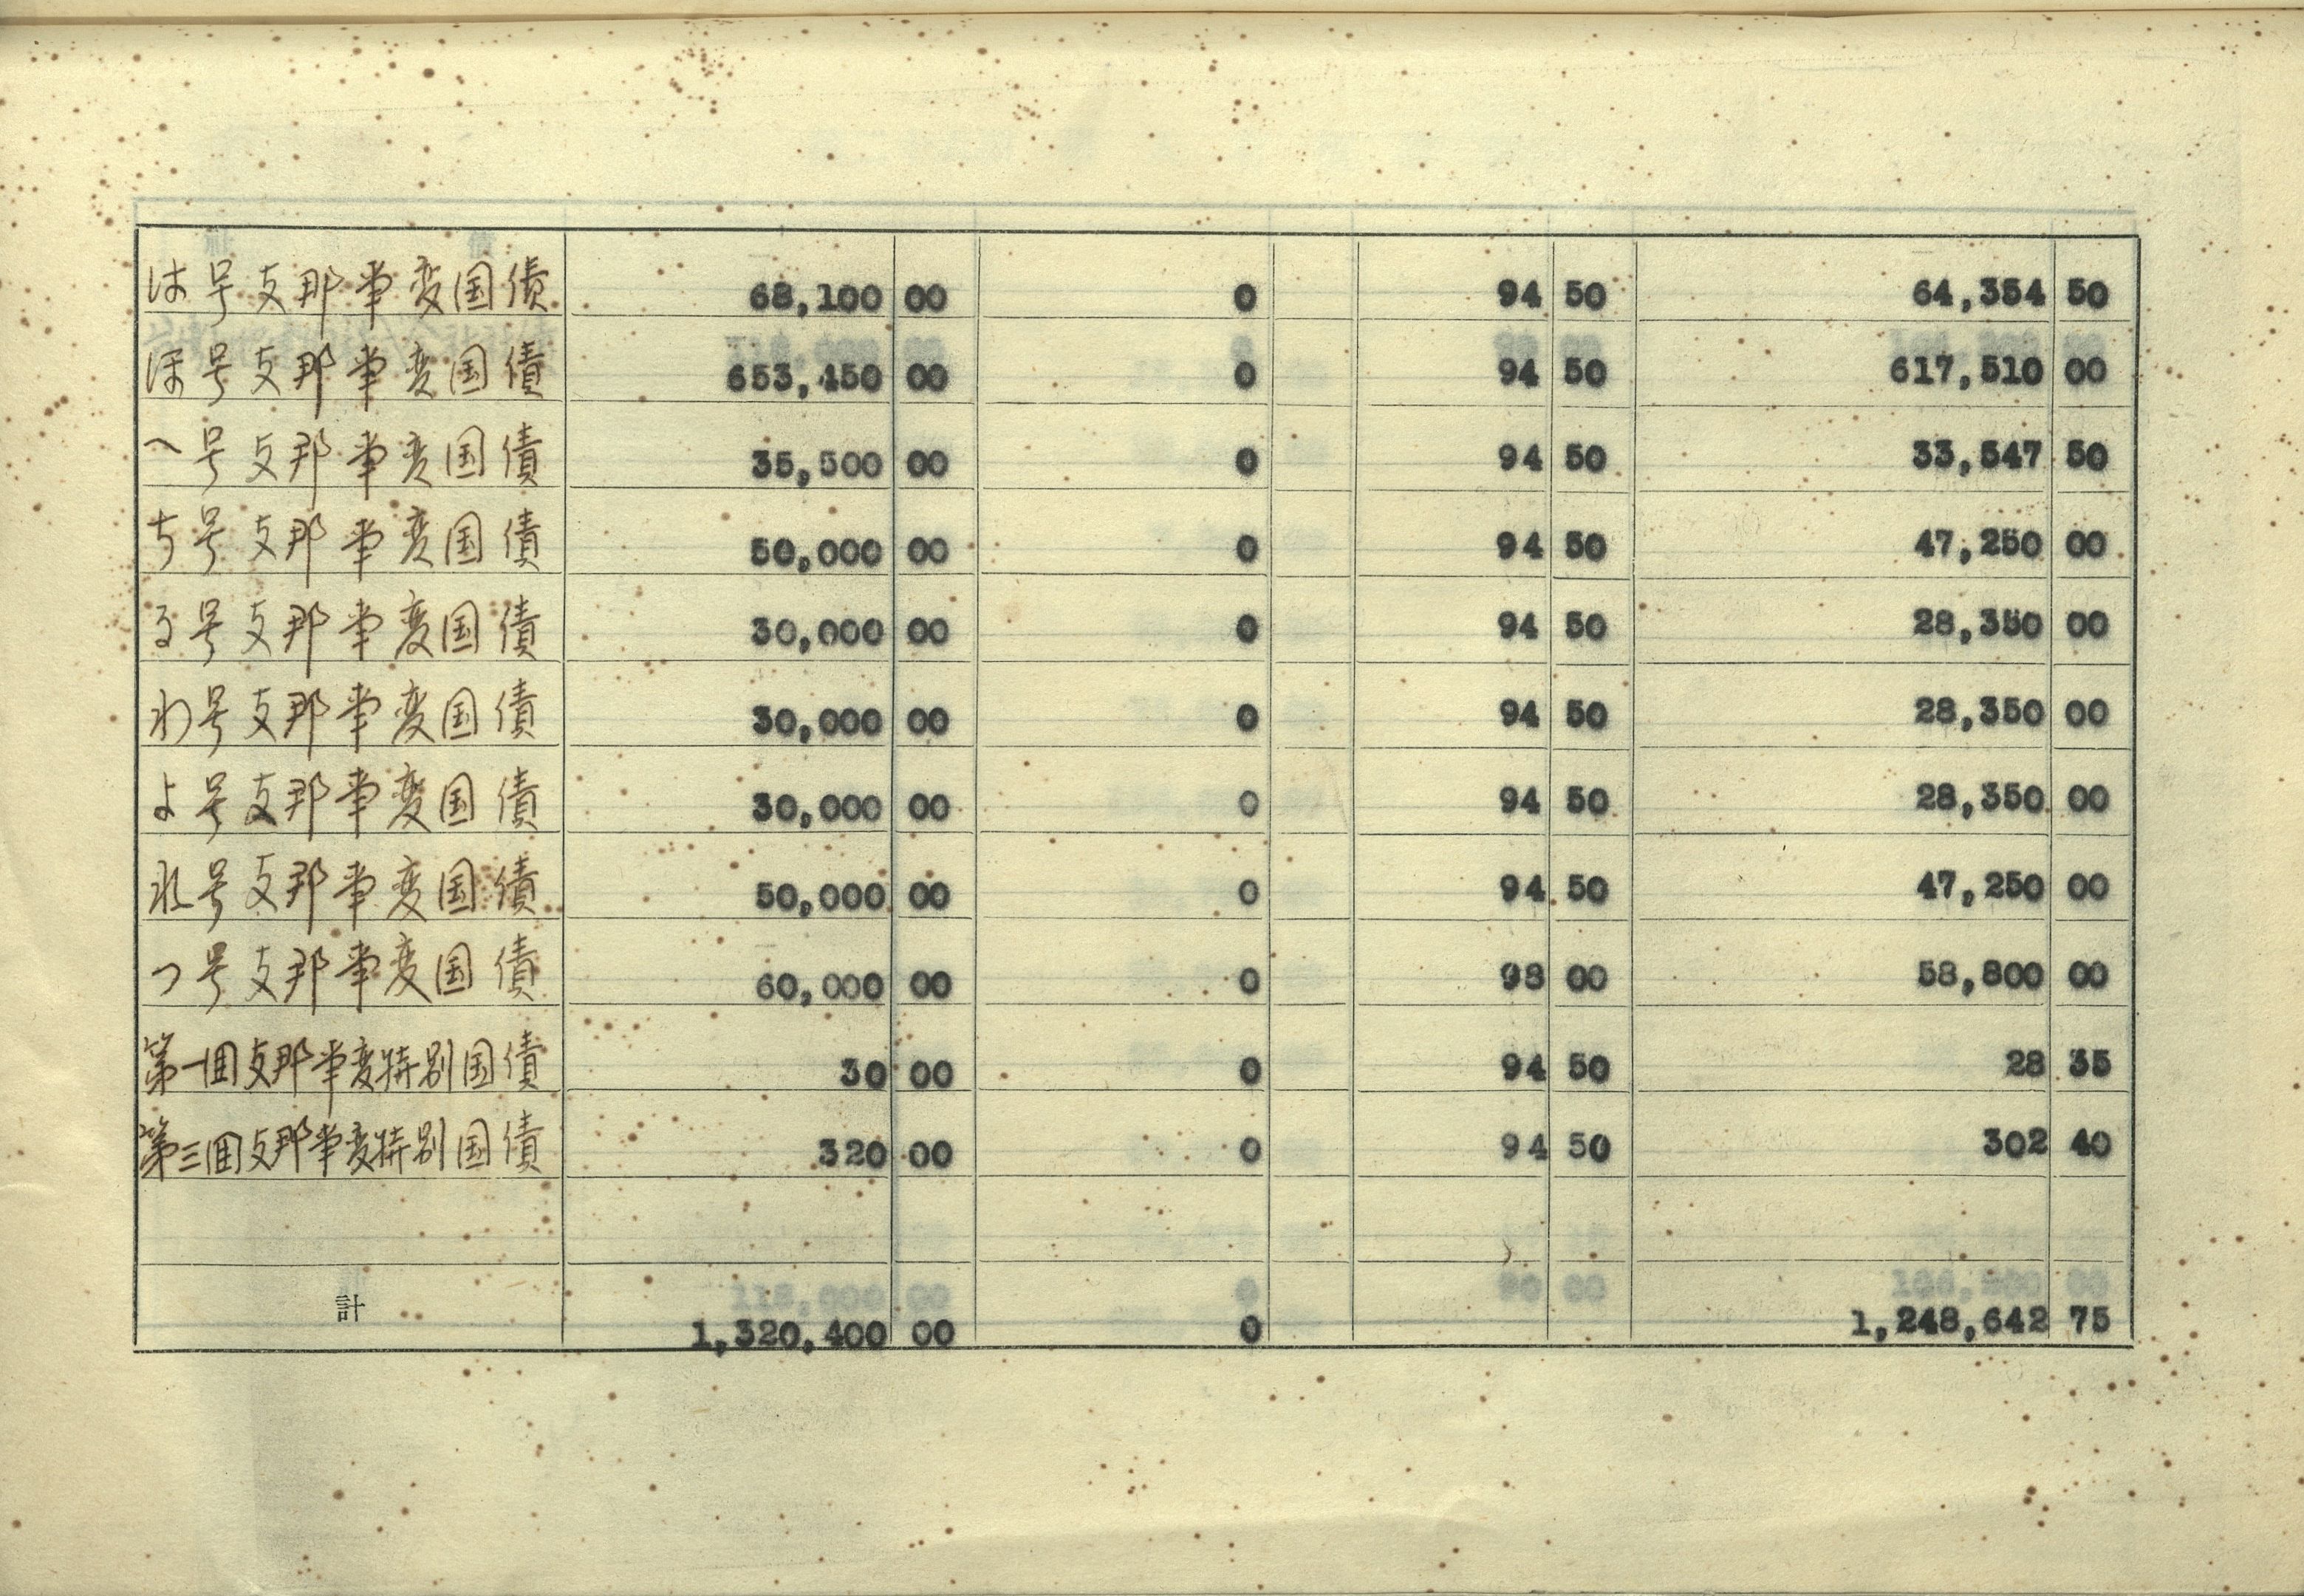 は号支那事変国債 68,100 00 0 94 50 64,354 50
ほ号支那事変国債 653,450 00 0 94 50 617,510 00
へ号支那事変国債 35,500 00 0 94 50 33,547 50
ち号支那事変国債 50,000 00 0 94 50 47,250 00
る号支那事変国債 30,000 00 0 94 50 28,350 00
わ号支那事変国債 30,000 00 0 94 50 28,350 00
よ号支那事変国債 30,000 00 0 94 50 28,350 00
れ号支那事変国債 50,000 00 0 94 50 47,250 00
つ号支那事変国債 60,000 00 0 98 00 58,800 00
第一回支那事変特別国債 30 00 0 94 50 28 35
第三回支那事変特別国債 320 00 0 94 50 302 40
計 1,320,400 00 0 1,248,642 75